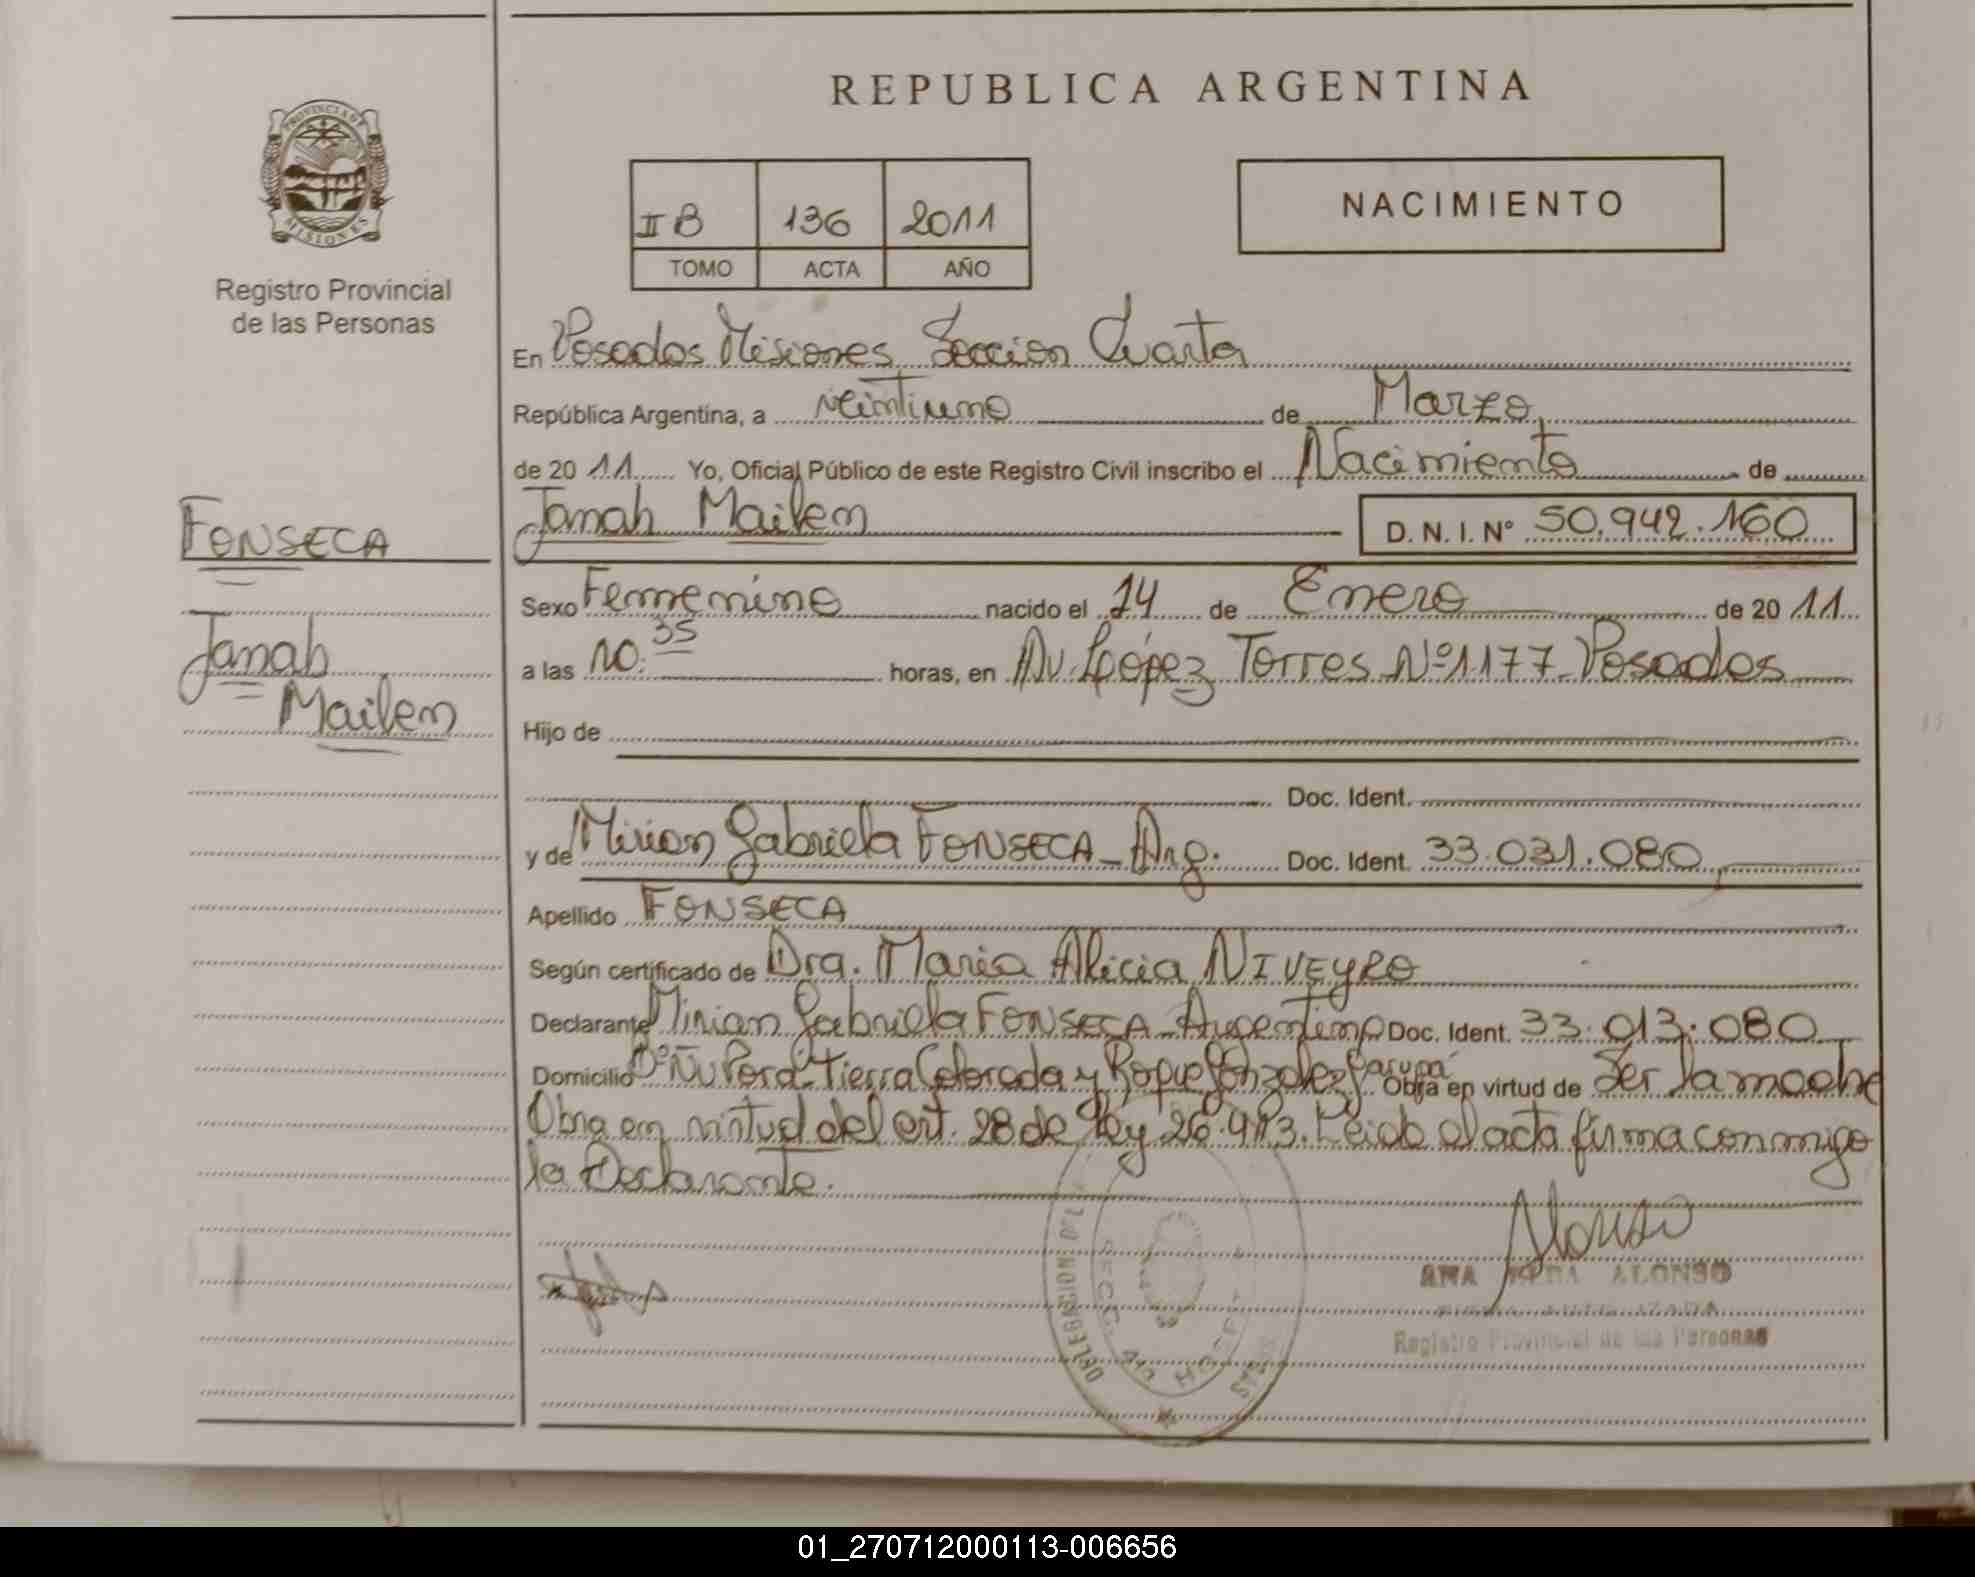 REPUBLICA ARGENTINA
PROVINCIA DE MISIONES
Registro Provincial
de las Personas
II B 136 2011
TOMO ACTA AÑO
NACIMIENTO
En Posadas Misiones Seccion Cuarta
República Argentina, a veintiuno de Marzo
de 2011 Yo, Oficial Público de este Registro Civil inscribo el Nacimiento de
Janah Mailen D. N. I. Nº 50.942.160
FONSECA
Janah
Mailen
Sexo Femenino nacido el 14 de Enero de 2011
a las 10:35 horas, en Av. López Torres Nº 1177 Posadas
Hijo de
Doc. Ident.
y de Mirian Gabriela FONSECA - Arg. Doc. Ident. 33.031.080
Apellido FONSECA
Según certificado de Dra. Maria Alicia NIVEYRO
Declarante Mirian Gabriela FONSECA - Argentina Doc. Ident. 33.013.080
Domicilio Bº Ñu Porá Tierra Colorada y Roque Gonzalez Garupá Obra en virtud de Ser la madre
Obra en virtud del art. 28 de Ley 26.413. Leido el acta firma conmigo
la Declarante.
Alonso
ANA ALONSO
Registro Provincial de las Personas
DELEGACION DEL
SECC. HOSP.
01_270712000113-006656